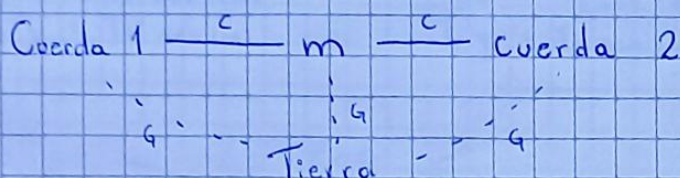 c c
Cuerda 1 m cuerda 2
G
G G
Tierra